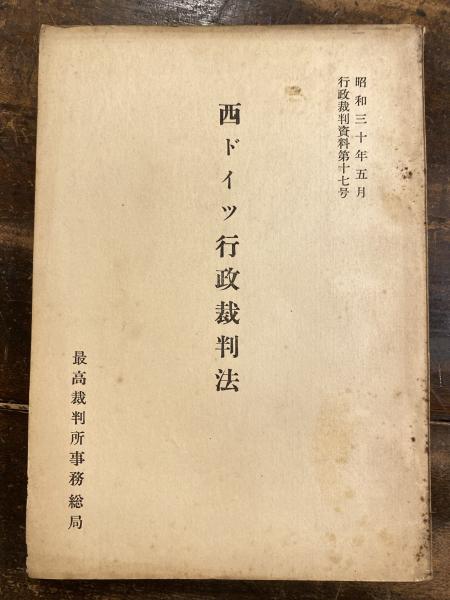 昭和三十年五月
行政裁判資料第十七号
西ドイツ行政裁判法
最高裁判所事務総局